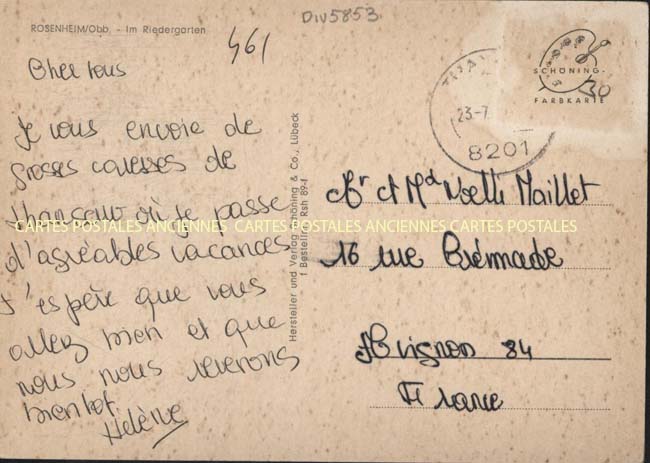 Div5853
ROSENHEIM/Obb. - Im Riedergarten
461
Cher tous
Je vous envoie de
grosses caresses de
où je passe
d'agréables vacances
J'espère que vous
allez bien et que
nous nous reverrons
bientot
Hélène
Hersteller und Verlag Schöning & Co., Lübeck
Bestell Rsh 89-f
23-7
8201
SCHÖNING-
FARBKARTE
30
Mr et Md Noelle Maillet
16 rue
Avignon 84
France
CARTES POSTALES ANCIENNES CARTES POSTALES ANCIENNES CARTES POSTALES